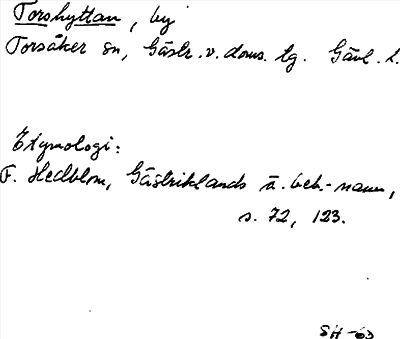 Torshyttan, by
Torsåker sn, Gästr. v. doms. tg. Gävl. l.
Etymologi:
F. Hedblom, Gästriklands ä. beb.-namn,
s. 72, 123.
SH -63